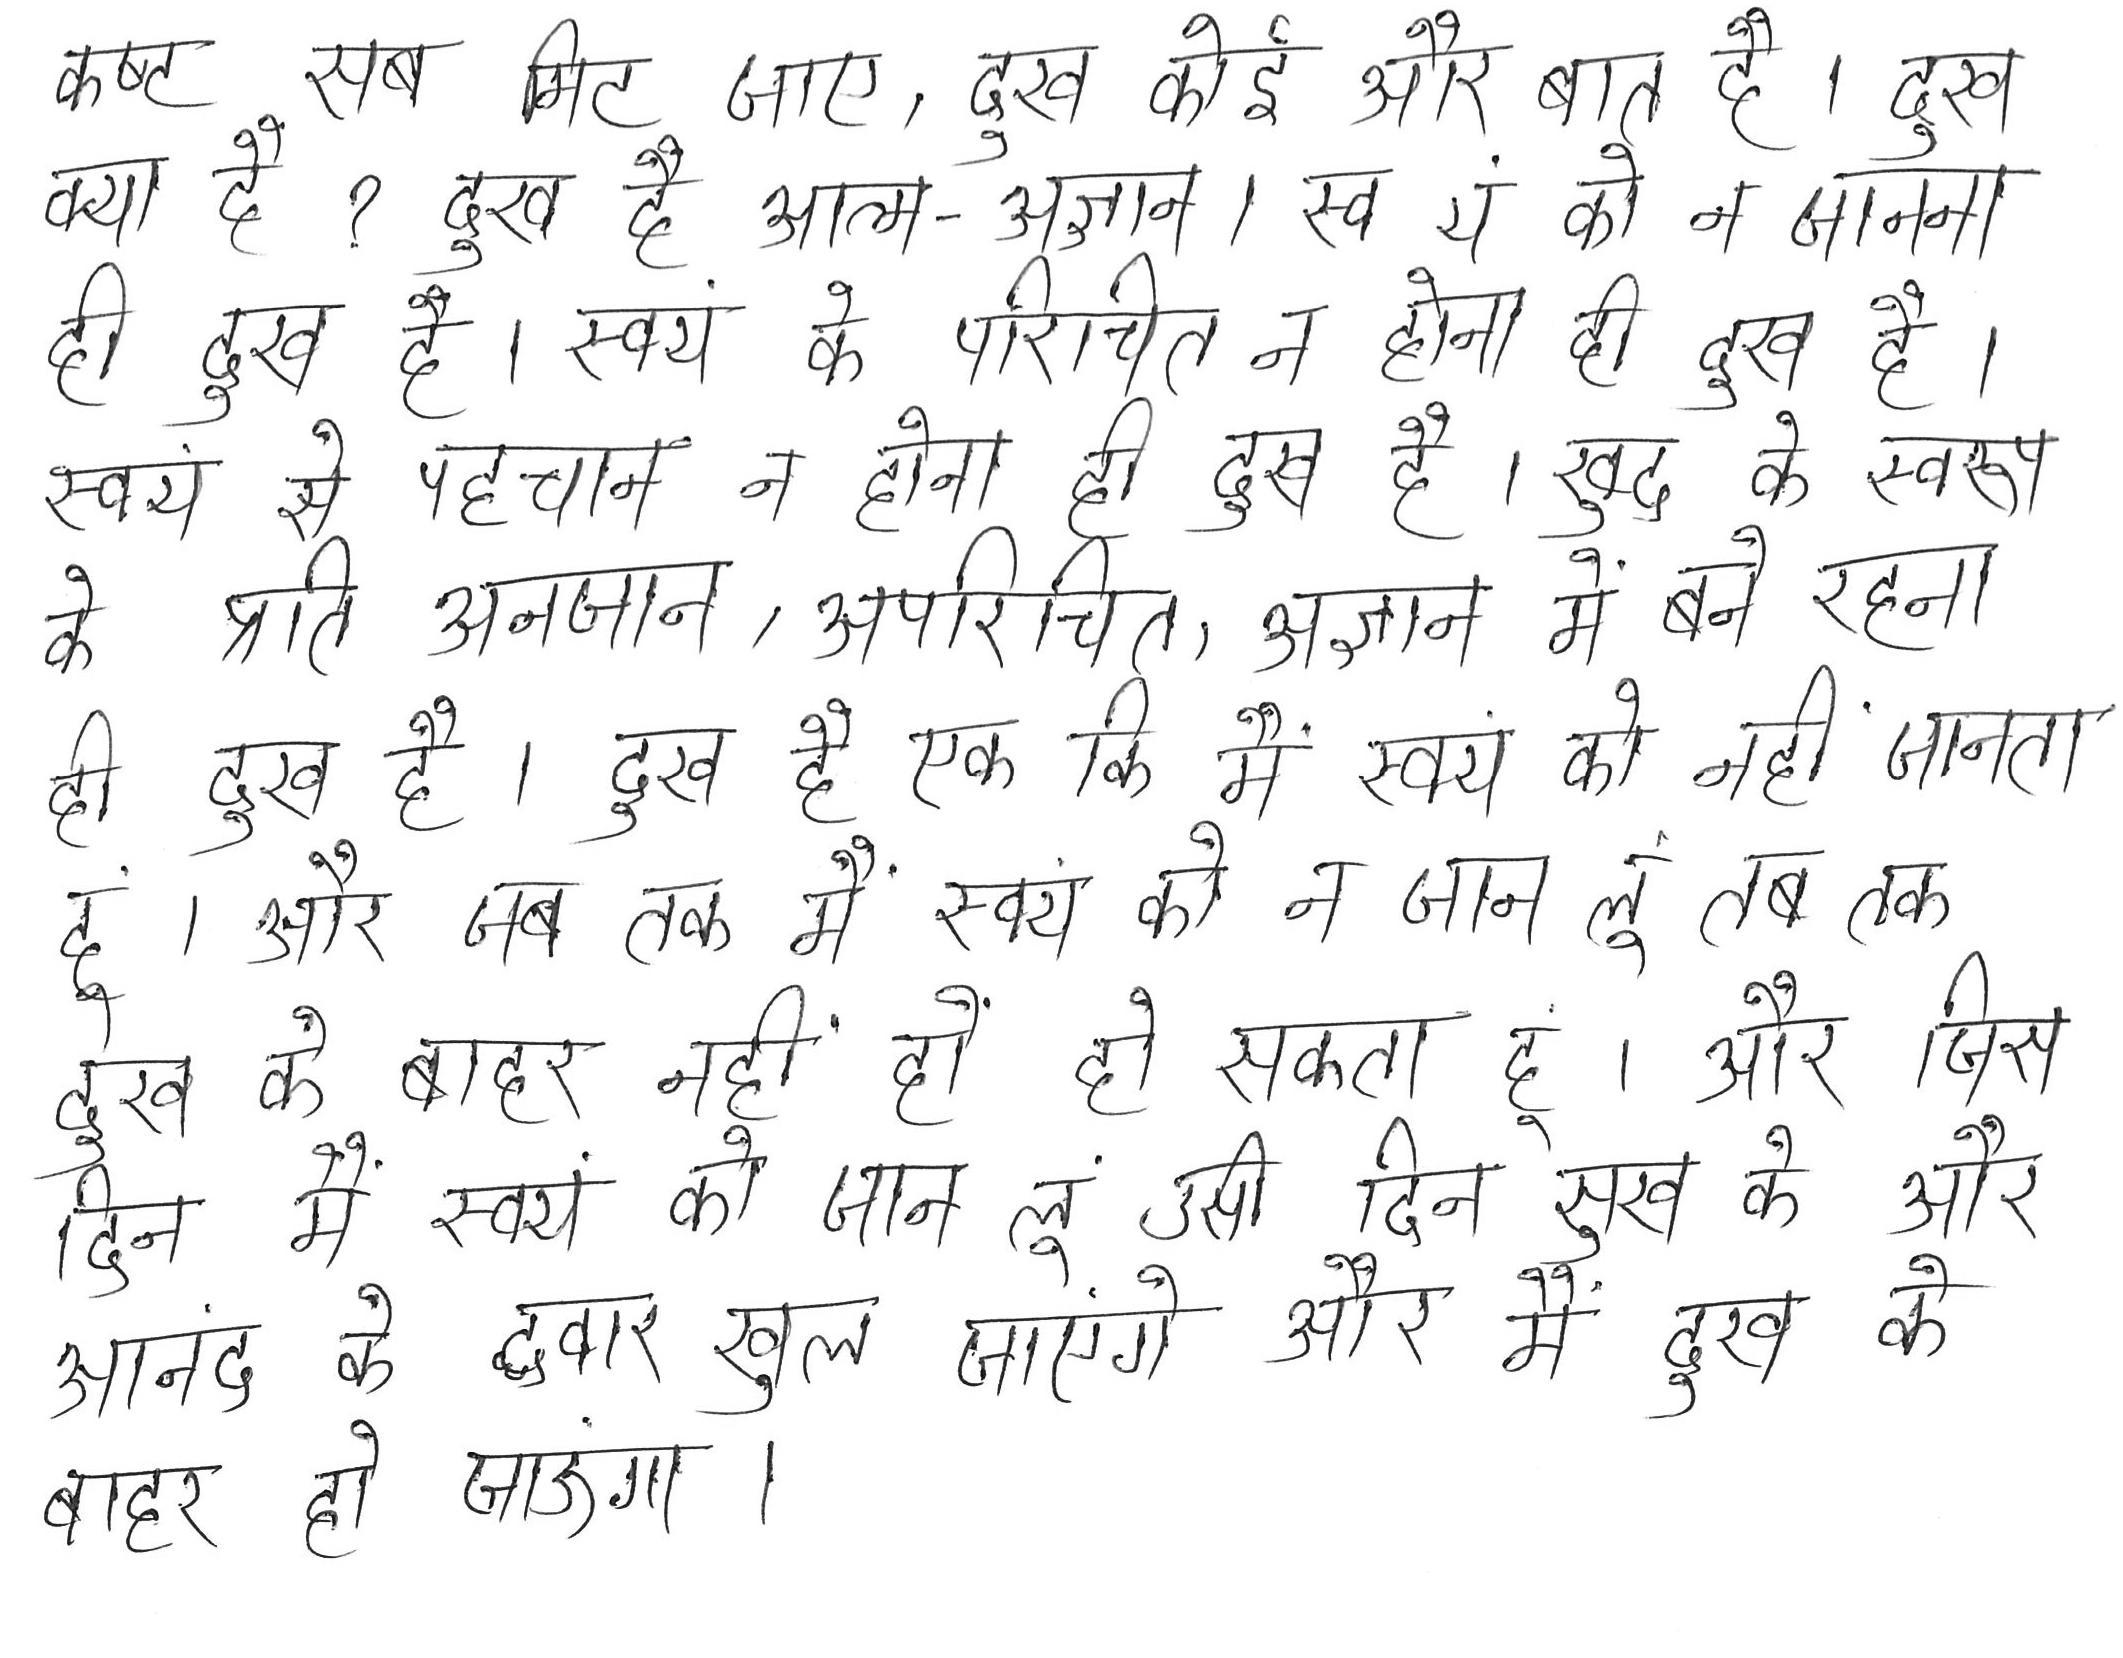 कष्ट सब मिट जाए, दुख कोई और बात है । दुख
क्या है ? दुख है आत्म-अज्ञान । स्व यं को न जानना
ही दुख है । स्वयं के परिचित न होना ही दुख है ।
स्वयं से पहचान न होना ही दुख है । खुद के स्वरूप
के प्रति अनजान, अपरिचित, अज्ञान में बने रहना
ही दुख है । दुख है एक कि मैं स्वयं को नहीं जानता
हूं । और जब तक मैं स्वयं को न जान लूं तब तक
दुख के बाहर नहीं हों हो सकता हूं । और जिस
दिन मैं स्वयं को जान लूं उसी दिन सुख के और
आनंद के द्धवार खुल जाएंगे और मैं दुख के
बाहर हो जाऊंगा ।